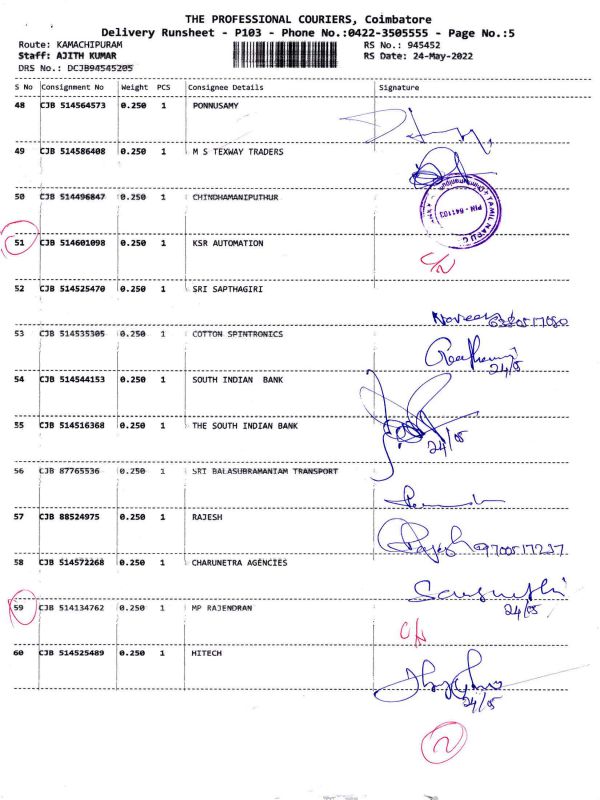 THE PROFESSIONAL COURIERS, Coimbatore
Delivery Runsheet - P103 - Phone No.:0422-3505555 - Page No.:5
Route: KAMACHIPURAM RS No.: 945452
Staff: AJITH KUMAR RS Date: 24-May-2022
DRS No.: DCJB94545205
S No Consignment No Weight PCS Consignee Details Signature
48 CJB 514564573 0.250 1 PONNUSAMY
49 CJB 514586408 0.250 1 M S TEXWAY TRADERS
50 CJB 514496847 0.250 1 CHINDHAMANIPUTHUR
PIN - 641103
51 CJB 514601098 0.250 1 KSR AUTOMATION
C/N
52 CJB 514525470 0.250 1 SRI SAPTHAGIRI
53 CJB 514535305 0.250 1 COTTON SPINTRONICS
24/05
54 CJB 514544153 0.250 1 SOUTH INDIAN BANK
55 CJB 514516368 0.250 1 THE SOUTH INDIAN BANK
24/05
56 CJB 87765536 0.250 1 SRI BALASUBRAMANIAM TRANSPORT
57 CJB 88524975 0.250 1 RAJESH
Rajesh 9700517237
58 CJB 514572268 0.250 1 CHARUNETRA AGENCIES
24/05
59 CJB 514134762 0.250 1 MP RAJENDRAN
C/N
60 CJB 514525489 0.250 1 HITECH
24/05
2